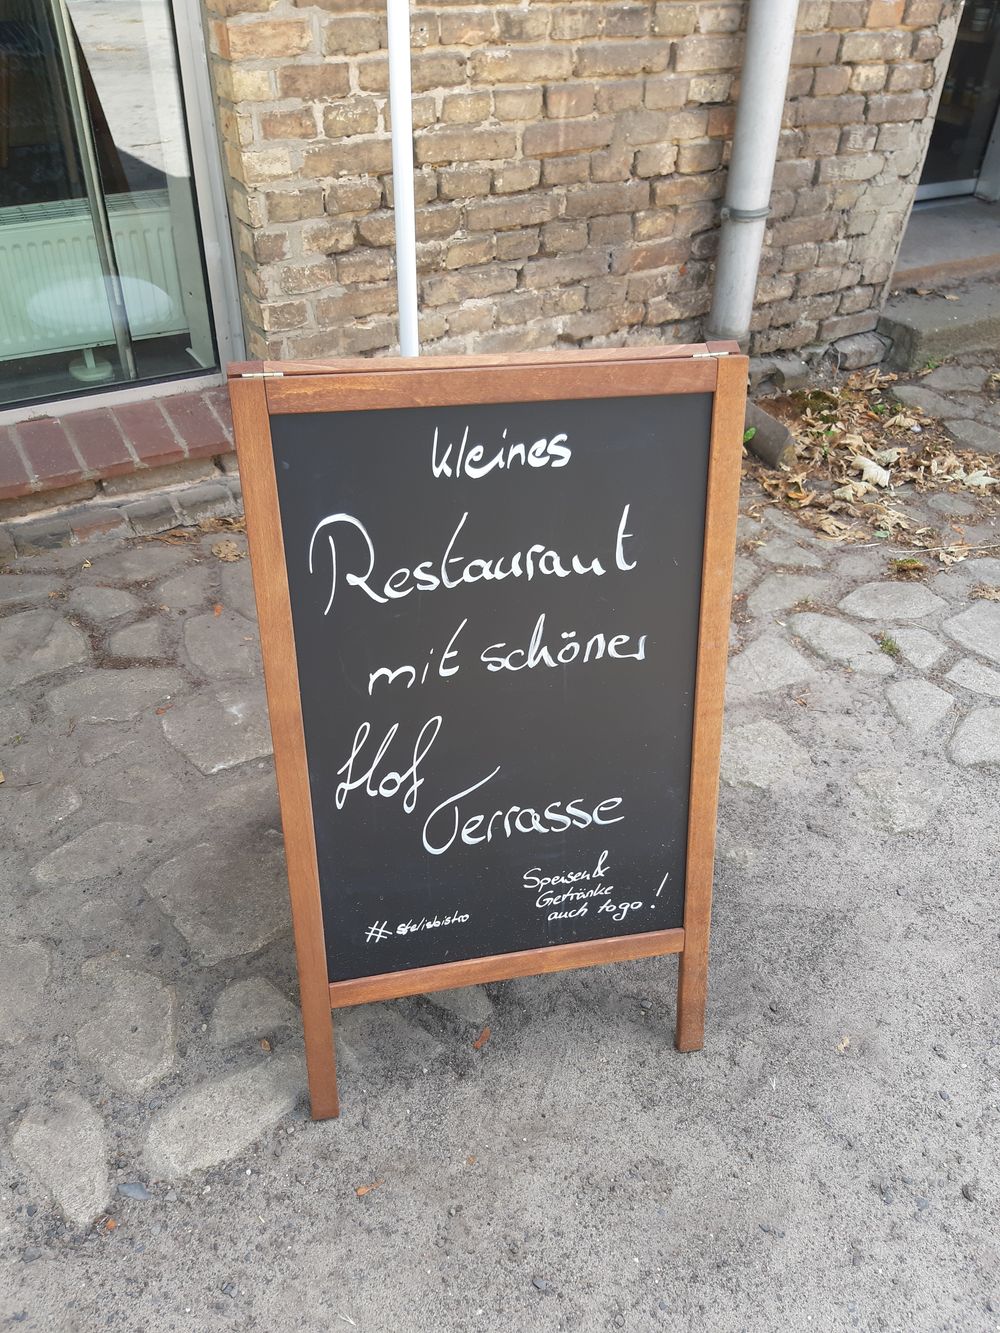 kleines
Restaurant
mit schöner
Hof
Terrasse
Speisen &
Getränke
auch to go !
#stelisbistro